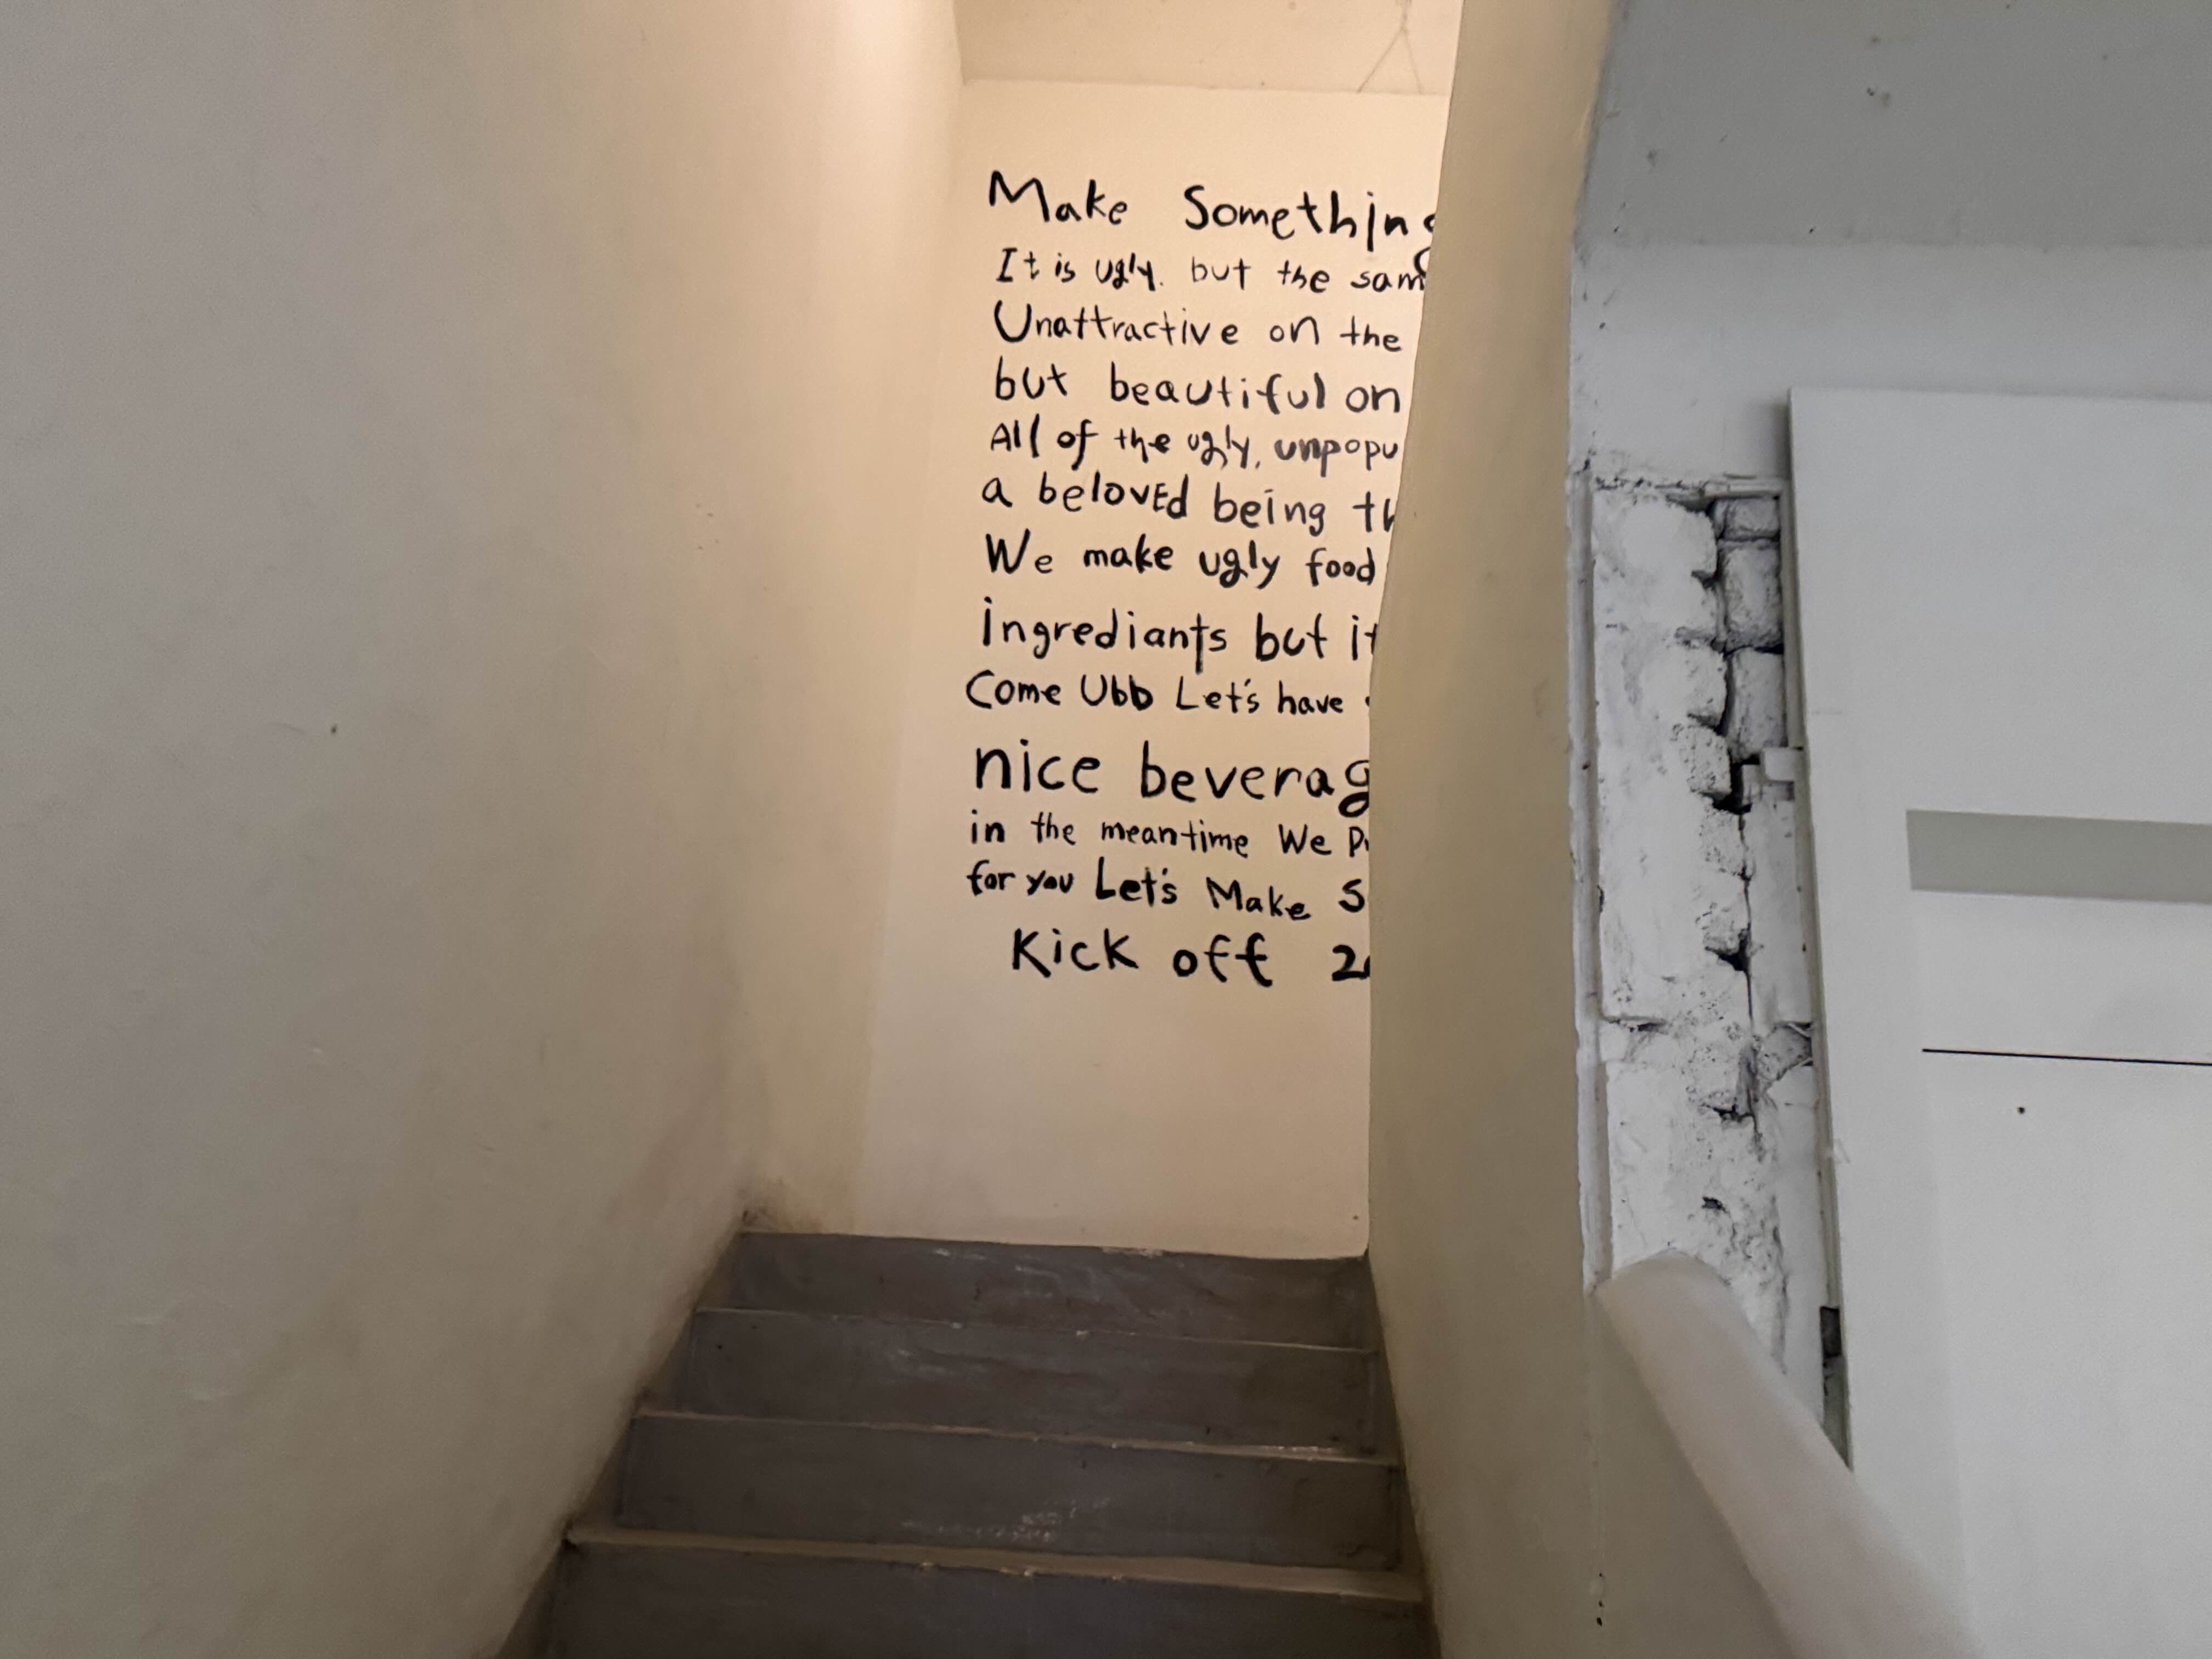 Make Something
It is ugly. but the sam
Unattractive on the
but beautiful on
All of the ugly, unpopu
a beloved being th
We make ugly food
ingrediants but it
Come Ubb Let's have
nice beverag
in the meantime We
for you Let's Make S
Kick off 2